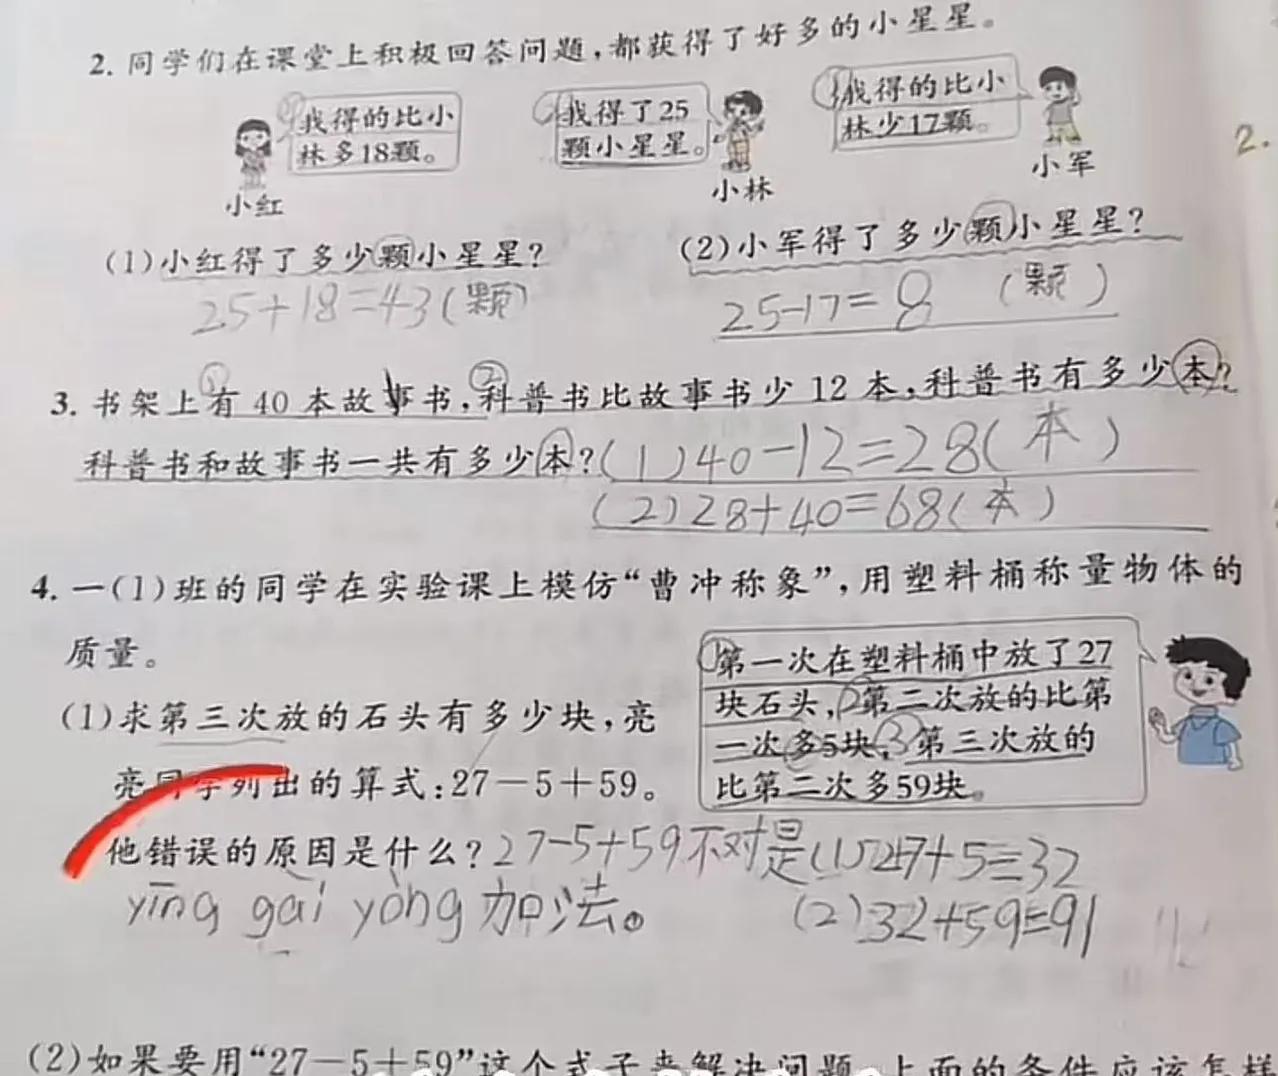 2. 同学们在课堂上积极回答问题，都获得了好多的小星星。
我得的比小
林多18颗。
小红
我得了25
颗小星星。
小林
我得的比小
林少17颗。
小军
2.
(1)小红得了多少颗小星星？
25+18=43(颗)
(2)小军得了多少颗小星星？
25-17=8 (颗)
3. 书架上有 40 本故事书，科普书比故事书少 12 本，科普书有多少本？
科普书和故事书一共有多少本？(1)40-12=28(本)
(2)28+40=68(本)
4. 一(1)班的同学在实验课上模仿“曹冲称象”，用塑料桶称量物体的
质量。
(1)求第三次放的石头有多少块，亮
亮同学列出的算式：27－5＋59。
他错误的原因是什么？27-5+59不对是(1)27+5=32
yīng gāi yòng 加法。
(2)32+59=91
①第一次在塑料桶中放了27
块石头，②第二次放的比第
一次多5块，③第三次放的
比第二次多59块。
(2)如果要用“27－5＋59”这个式子来解决问题，上面的条件应该怎样